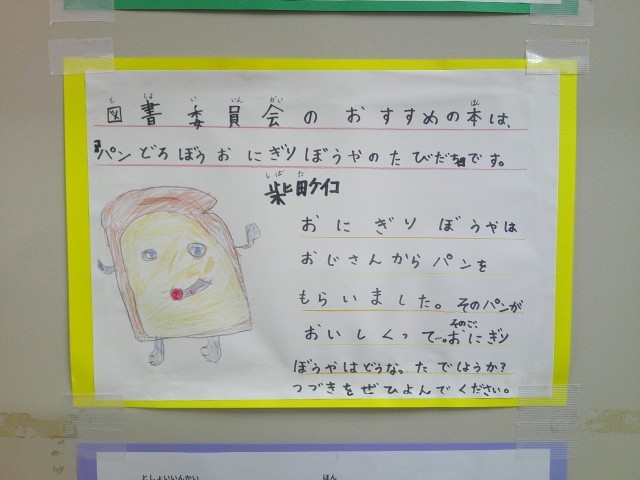 図書委員会のおすすめの本は、
としょいいんかい ほん
『パンどろぼうおにぎりぼうやのたびだち』です。
しばた
柴田ケイコ
おにぎりぼうやは
おじさんからパンを
もらいました。そのパンが
そのご、
おいしくって…。おにぎり
ぼうやはどうなったでしょうか?
つづきをぜひよんでください。
としょいいんかい ほん